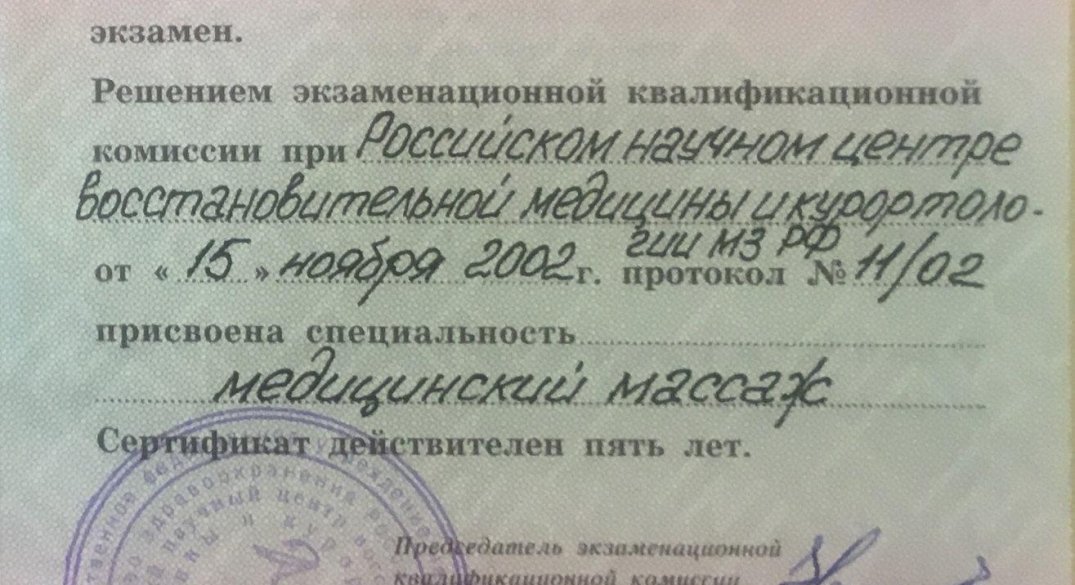 экзамен.
Решением экзаменационной квалификационной
комиссии при Российском научном центре
восстановительной медицины и курортоло-
гии МЗ РФ
от « 15 » ноября 2002 г. протокол № 11/02
присвоена специальность
медицинский массаж
Сертификат действителен пять лет.
здравоохранения
научный центр
Председатель экзаменационной
квалификационной комиссии